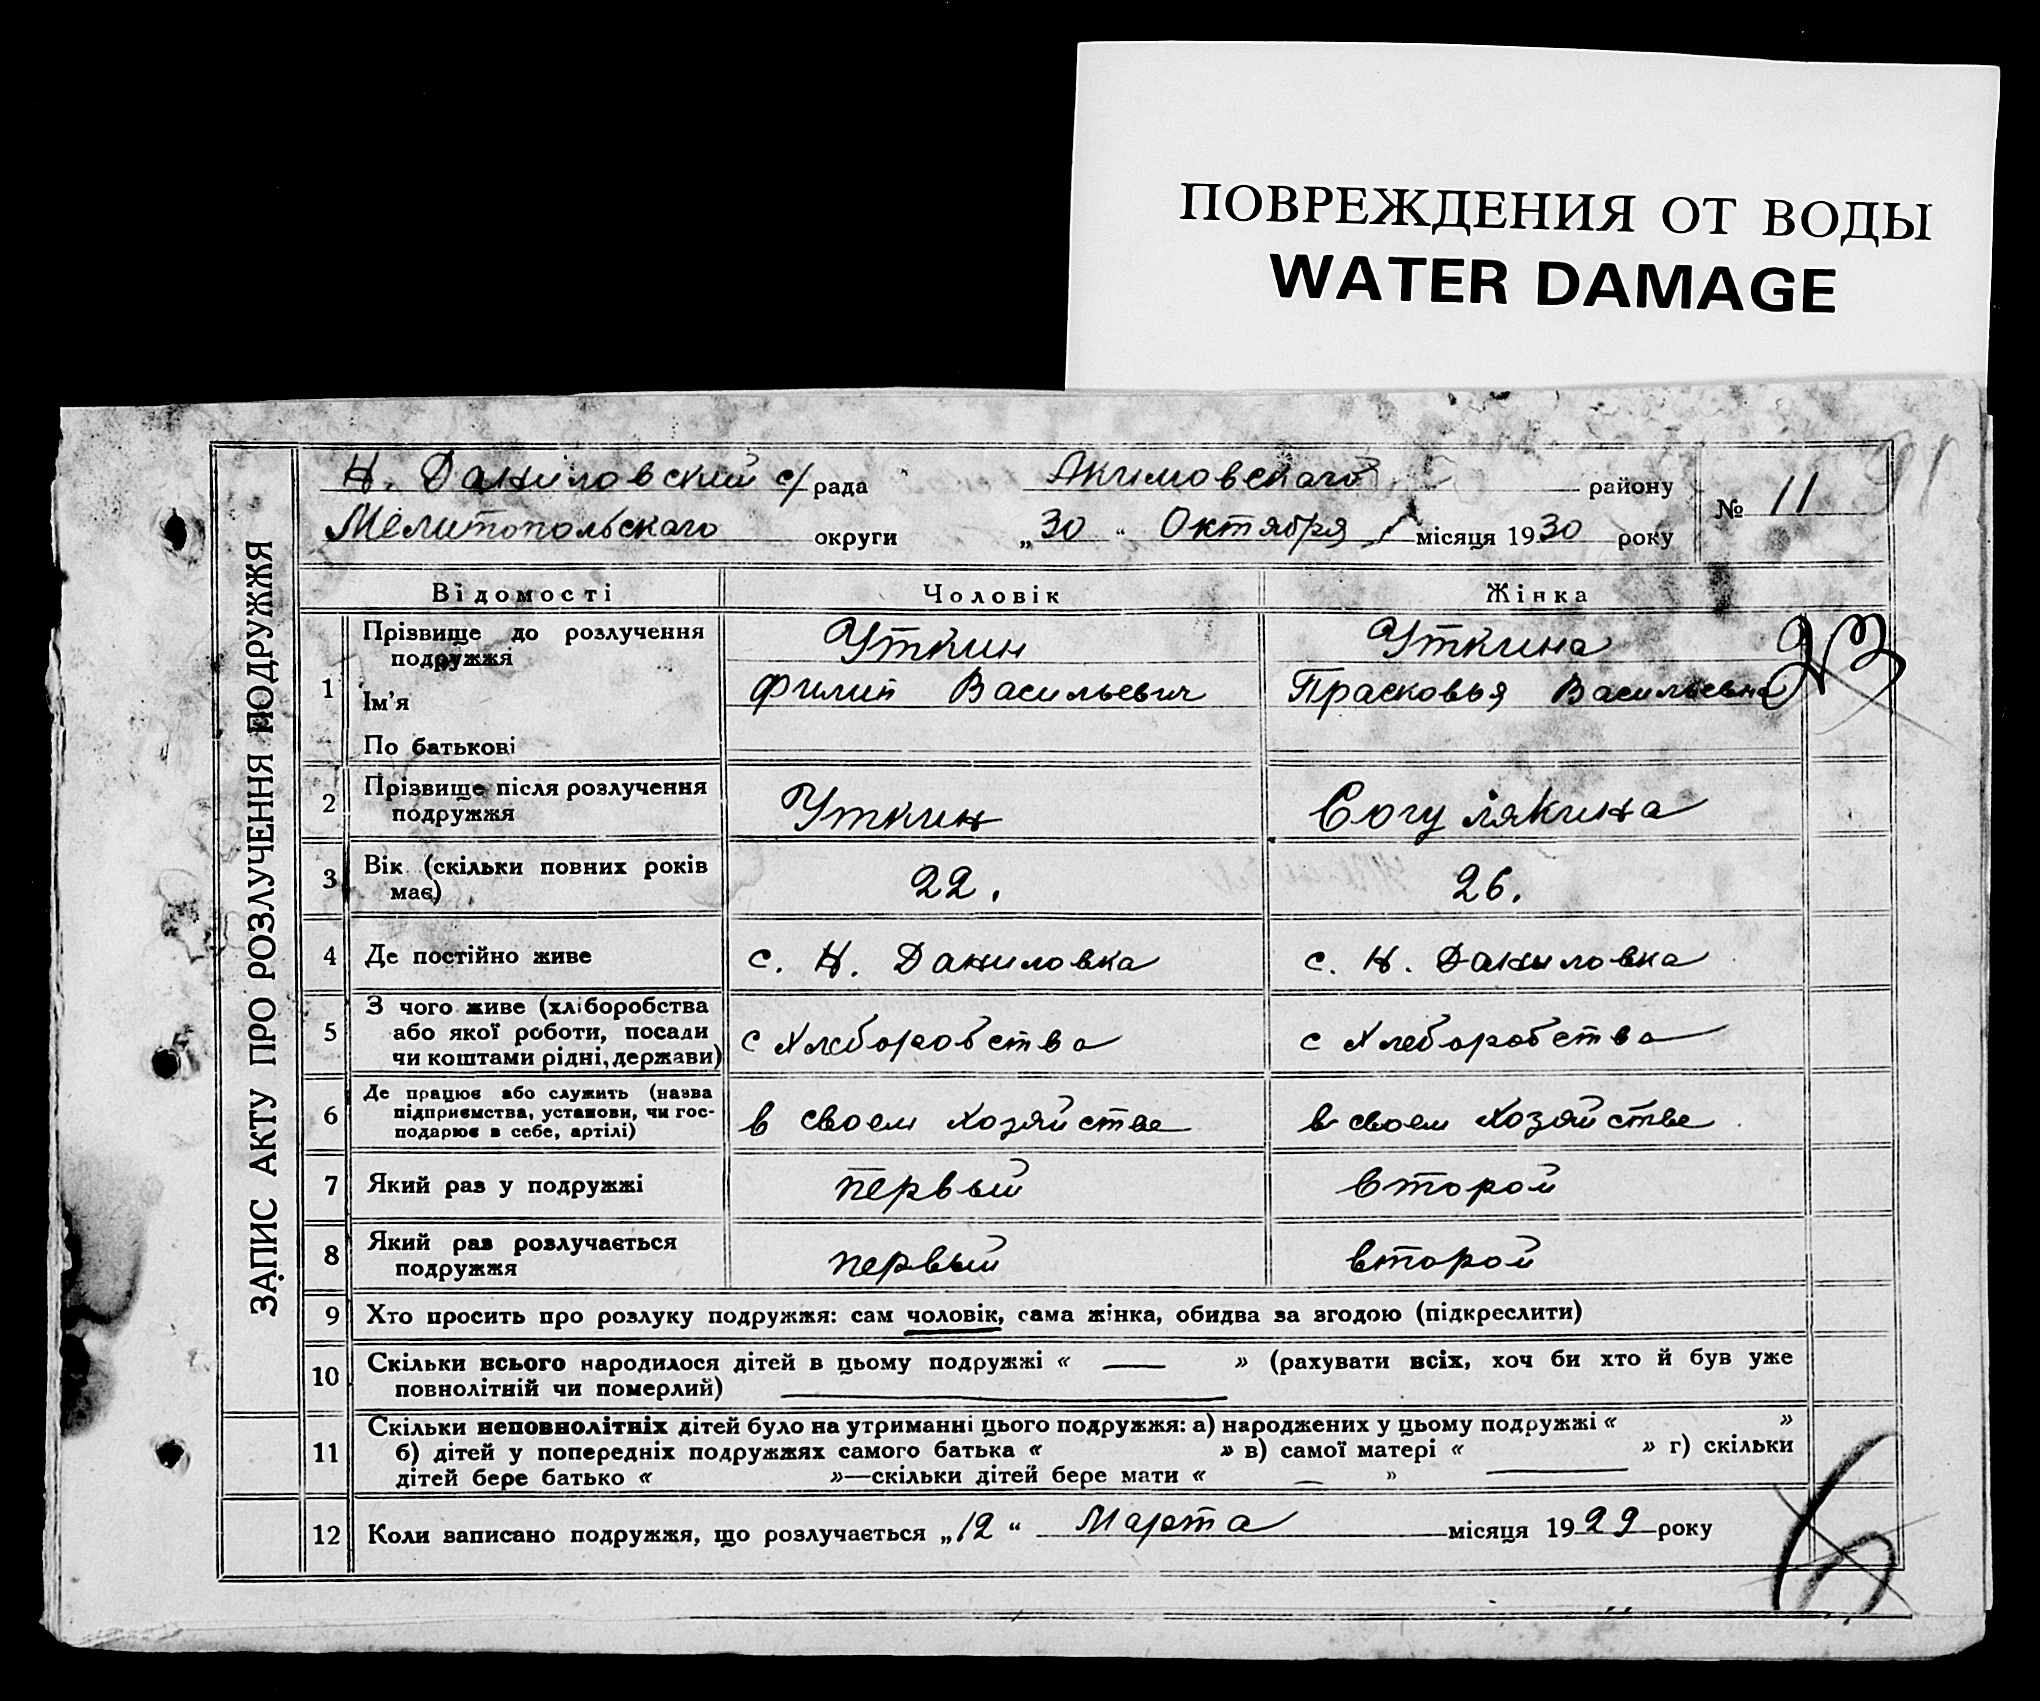 ПОВРЕЖДЕНИЯ ОТ ВОДЫ
WATER DAMAGE
91
ЗАПИС АКТУ ПРО РОЗЛУЧЕННЯ ПОДРУЖЖЯ
Н. Даниловский с/рада Акимовскаго району № 11
Мелитопольскаго округи „30“ Октября місяця 1930 року
Відомості Чоловік Жінка
1 Прізвище до розлучення подружжя Уткин Уткина
Ім'я Филип Васильевич Прасковья Васильевна
По батькові
2 Прізвище після розлучення Уткин
подружжя
3 Вік (скільки повних років 22. 26.
має)
4 Де постійно живе с. Н. Даниловка с. Н. Даниловка
5 З чого живе (хліборобства
або якої роботи, посади с Хлеборобства с Хлеборобства
чи коштами рідні, держави)
6 Де працює або служить (назва
підприємства, установи, чи гос- в своем хозяйстве в своем хозяйстве
подарює в себе, артілі)
7 Який раз у подружжі первый второй
8 Який раз розлучається первый второй
подружжя
9 Хто просить про розлуку подружжя: сам чоловік, сама жінка, обидва за згодою (підкреслити)
10 Скільки всього народилося дітей в цьому подружжі « — » (рахувати всіх, хоч би хто й був уже
повнолітній чи померлий)
11 Скільки неповнолітніх дітей було на утриманні цього подружжя: а) народжених у цьому подружжі « »
б) дітей у попередніх подружжях самого батька « » в) самої матері « » г) скільки
дітей бере батько « »—скільки дітей бере мати « — »
12 Коли записано подружжя, що розлучається „12“ Марта місяця 1929 року